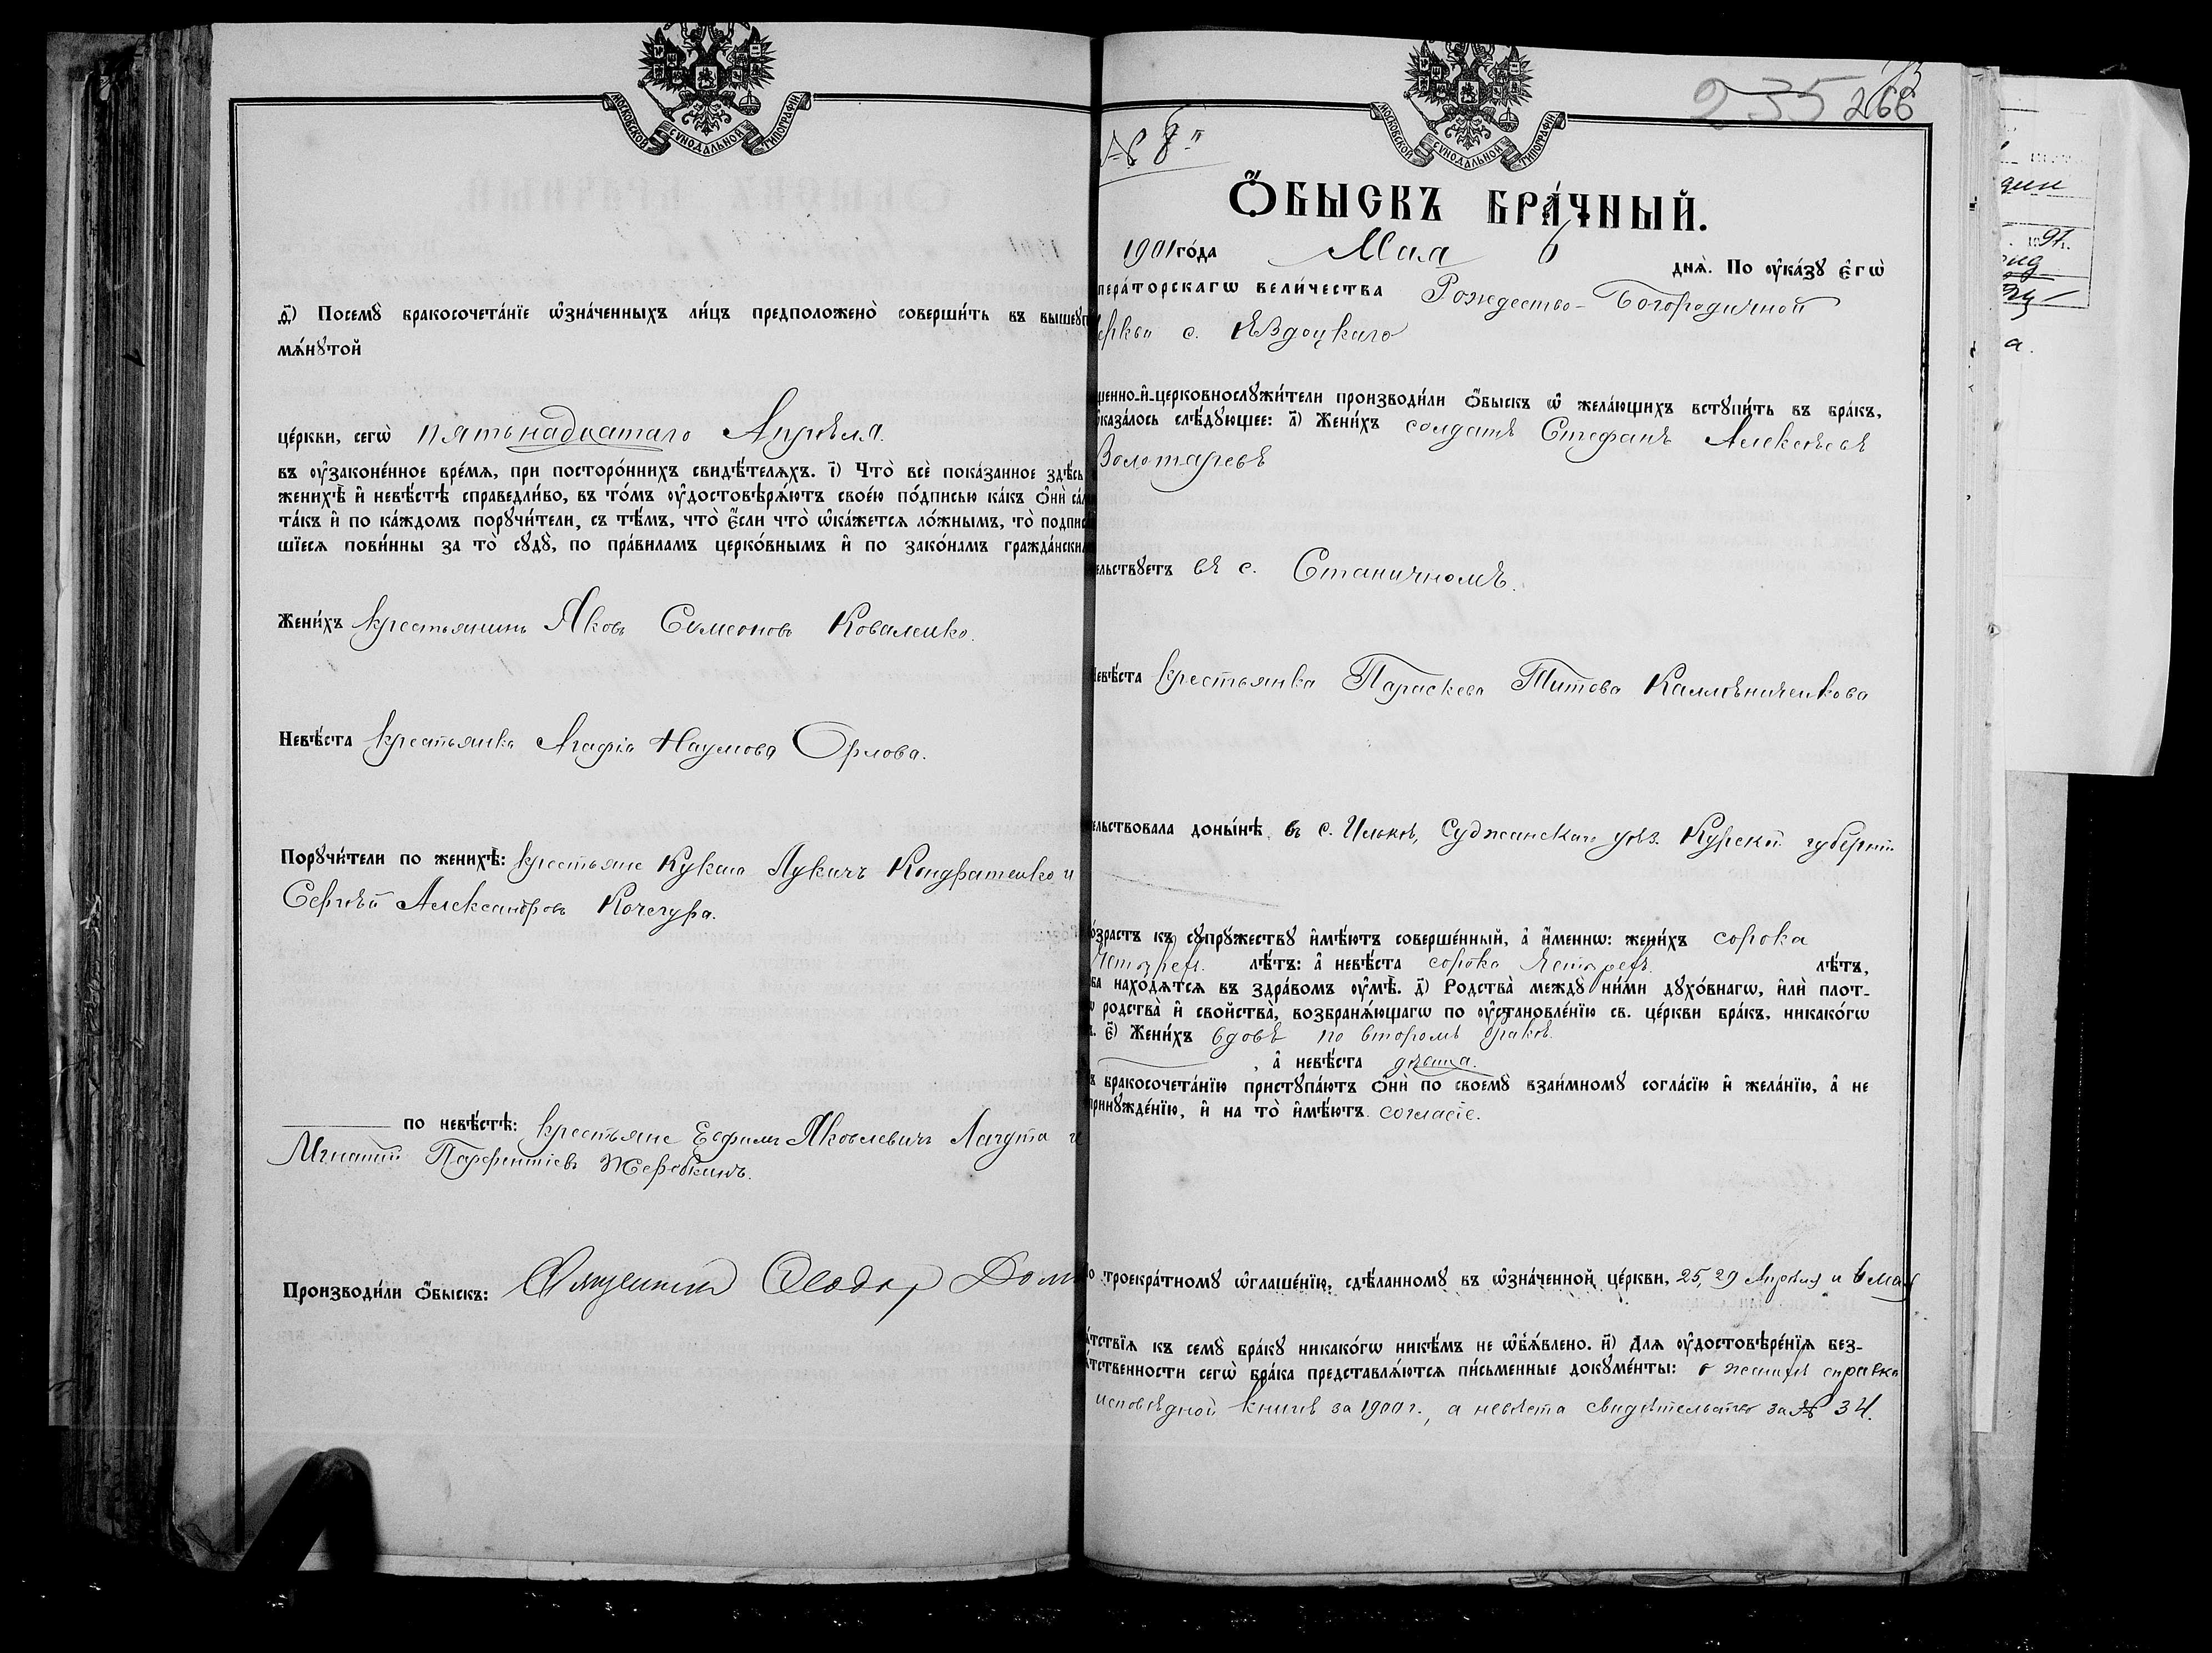 МОСКОВСКОЙ СѴНОДАЛЬНОЙ ТИПОГРАФІИ
ѳ҃) Посемꙋ̀ бракосочета́нїе ѡ҆зна́ченныхъ ли́цъ предположено̀ соверши́ть въ вышеꙋп
мѧ́нꙋтой
це́ркви, сегѡ̀ пятьнадцатаго Апрѣля.
въ ᲂу҆законе́нное вре́мѧ, при посторо́ннихъ свидѣ́телѧхъ. і҃) Что̀ всѐ пока́занное здѣ́сь
женихѣ̀ и҆ невѣ́стѣ справедли́во, въ то́мъ ᲂу҆достовѣрѧ́ютъ свое́ю по́дписью ка́къ ѻ҆нѝ са́м
та́къ и҆ по ка́ждомъ порꙋчи́тели, съ тѣ́мъ, что̀ є҆́сли что̀ ѡ҆ка́жетсѧ ло́жнымъ, то̀ подпис
шїесѧ пови́нны за то̀ сꙋдꙋ̀, по пра́виламъ церко́внымъ и҆ по зако́намъ гражда́нски
Жени́хъ крестьянинъ Яковъ Симеоновъ Коваленко.
Невѣ́ста крестьянка Агафія Наумова Орлова.
Порꙋчи́тели по женихѣ̀: крестьяне Кукша Лукичъ Кондратенко и
Сергѣй Александровъ Кочегура.
по невѣ́стѣ: крестьяне Евфимъ Яковлевичъ Лагута и
Игнатій Парфентіевъ Жеребкинъ.
Производи́ли ѻ҆́быскъ: Священникъ Ѳеодоръ
235 266
№ 8й
МОСКОВСКОЙ СѴНОДАЛЬНОЙ ТИПОГРАФІИ
Ѻ҆́БЫСКЪ БРА́ЧНЫЙ.
1901 го́да Мая 6 днѧ̀. По ᲂу҆ка́зꙋ є҆гѡ̀
ператорскагѡ вели́чества Рождество-Богородичной
еркви с. Яздоцкаго
щенно-и҆-церковнослꙋжи́тели производи́ли ѻ҆́быскъ ѡ҆ жела́ющихъ встꙋпи́ть въ бра́къ,
ѡказа́лось слѣ́дꙋющее: а҃) Жени́хъ солдатъ Стефанъ Алексѣевъ
Золотаревъ
ельствꙋетъ въ с. Станичномъ.
Невѣ́ста крестьянка Параскева Титова Калмѣниченкова
ельствовала доны́нѣ въ с. Илькѣ, Суджанскаго уѣз. Курской губерніи.
о́зрастъ къ сꙋпрꙋ́жествꙋ и҆мѣ́ютъ соверше́нный, а҆ и҆́меннѡ: жени́хъ сорока
четырехъ лѣ́тъ: а҆ невѣ́ста сорока четырехъ. лѣ́тъ,
ба нахо́дѧтсѧ въ здра́вомъ ᲂу҆мѣ̀. д҃) Родства̀ междꙋ̀ ни́ми дꙋхо́внагѡ, и҆лѝ плот-
ѡ родства̀ и҆ сво́йства̀, возбранѧ́ющагѡ по ᲂу҆становле́нїю св. це́ркви бра́къ, никако́гѡ
є҃) Жени́хъ вдовъ по второмъ бракѣ.
, а҆ невѣ́ста дѣвица.
ъ бракосочета́нїю пристꙋпа́ютъ ѻ҆нѝ по своемꙋ̀ взаи́мномꙋ согла́сїю и҆ жела́нїю, а҆ не
принꙋжде́нїю, и҆ на то̀ и҆мѣ́ютъ согласіе.
о троекра́тномꙋ ѡ҆глаше́нїю, сдѣ́ланномꙋ въ ѡ҆зна́ченной це́ркви, 25, 29 Апрѣля и 6 мая
ѧ́тствїѧ къ семꙋ̀ бра́кꙋ никако́гѡ никѣ́мъ не ѡ҆б̾ѧ́влено. и҃) Длѧ ᲂу҆достовѣре́нїѧ без-
ѧ́тственности сегѡ̀ бра́ка представлѧ́ютсѧ пи́сьменные докꙋме́нты: о женихѣ справка
исповѣдной книги за 1900 г., а невѣста свидѣтельство за № 34.